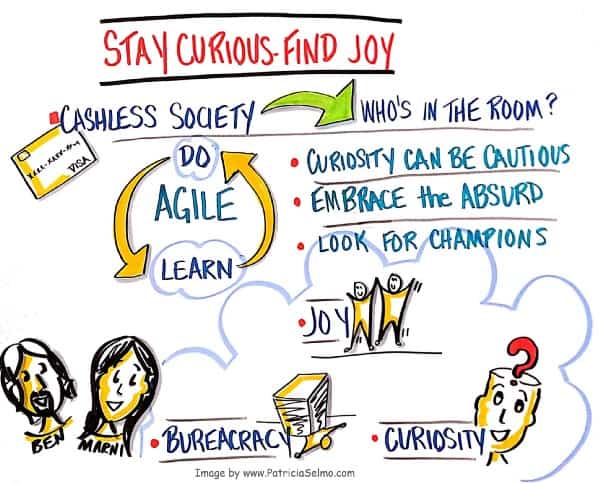 STAY CURIOUS-FIND JOY
CASHLESS SOCIETY
WHO'S IN THE ROOM?
XXXX-XXXX-##-#
VISA
DO
AGILE
LEARN
CURIOSITY CAN BE CAUTIOUS
EMBRACE the ABSURD
LOOK FOR CHAMPIONS
JOY
?
BEN
MARNI
BUREACRACY
CURIOSITY
Image by www.PatriciaSelmo.com